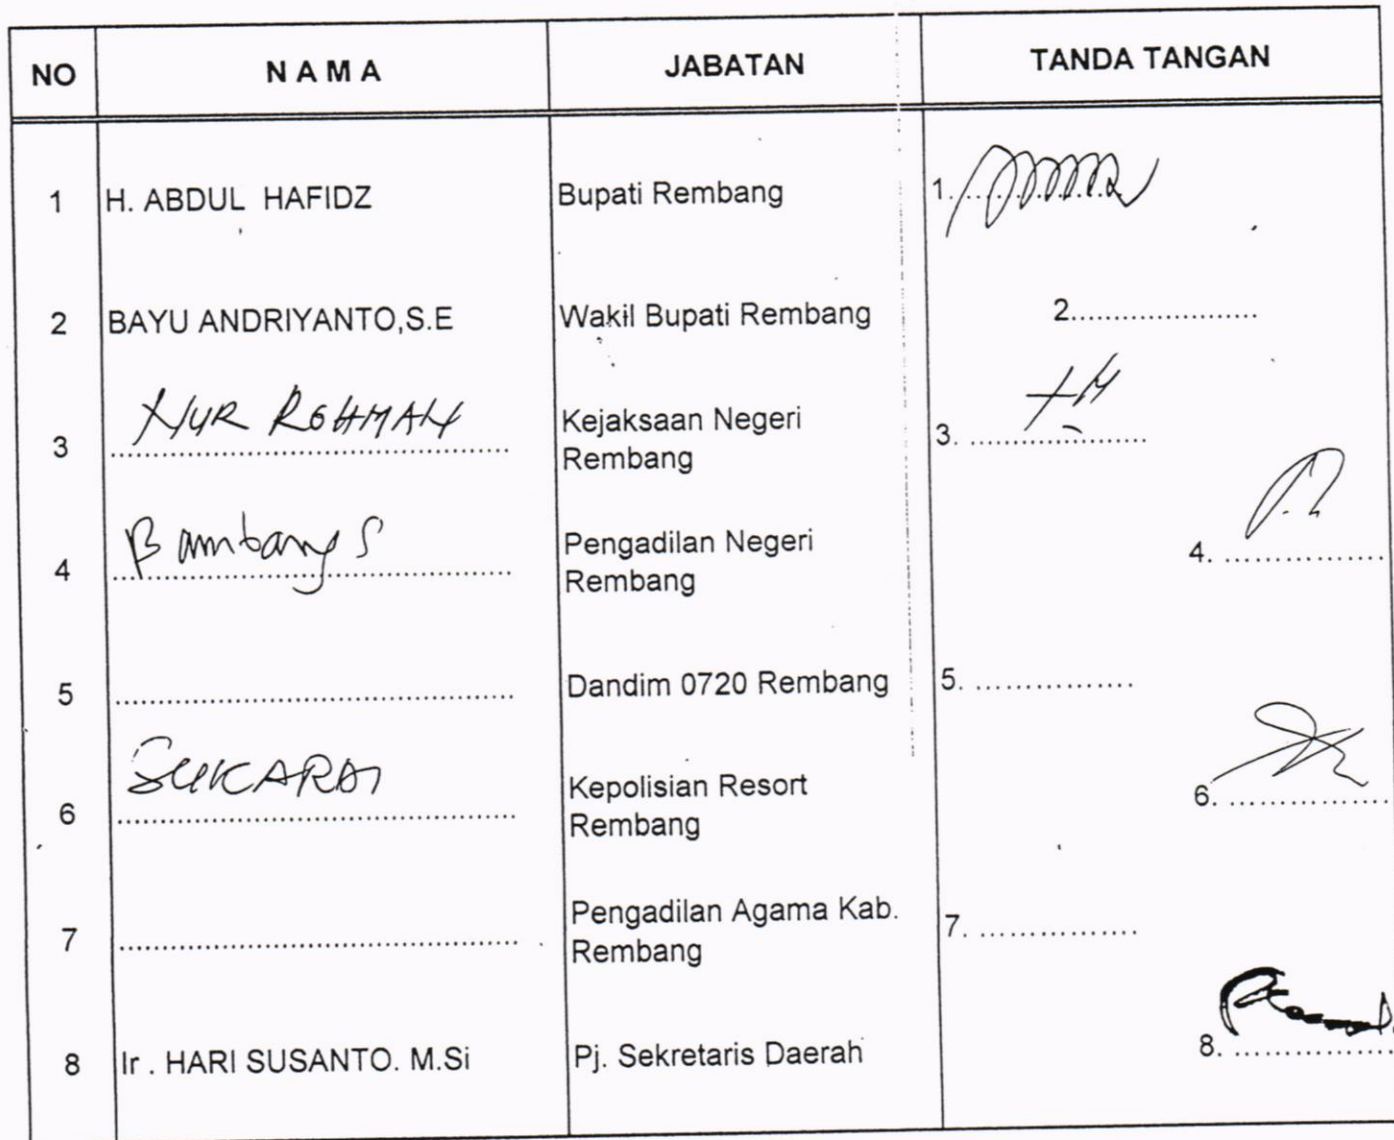 NO NAMA JABATAN TANDA TANGAN
1 H. ABDUL HAFIDZ Bupati Rembang 1..................
2 BAYU ANDRIYANTO,S.E Wakil Bupati Rembang 2...................
3 NUR ROHMAN Kejaksaan Negeri Rembang 3. ...................
4 Bambang S Pengadilan Negeri Rembang 4. .................
5 ........................................ Dandim 0720 Rembang 5. .................
6 Kepolisian Resort Rembang 6. .................
7 ........................................ Pengadilan Agama Kab. Rembang 7. .................
8 Ir . HARI SUSANTO. M.Si Pj. Sekretaris Daerah 8. .................